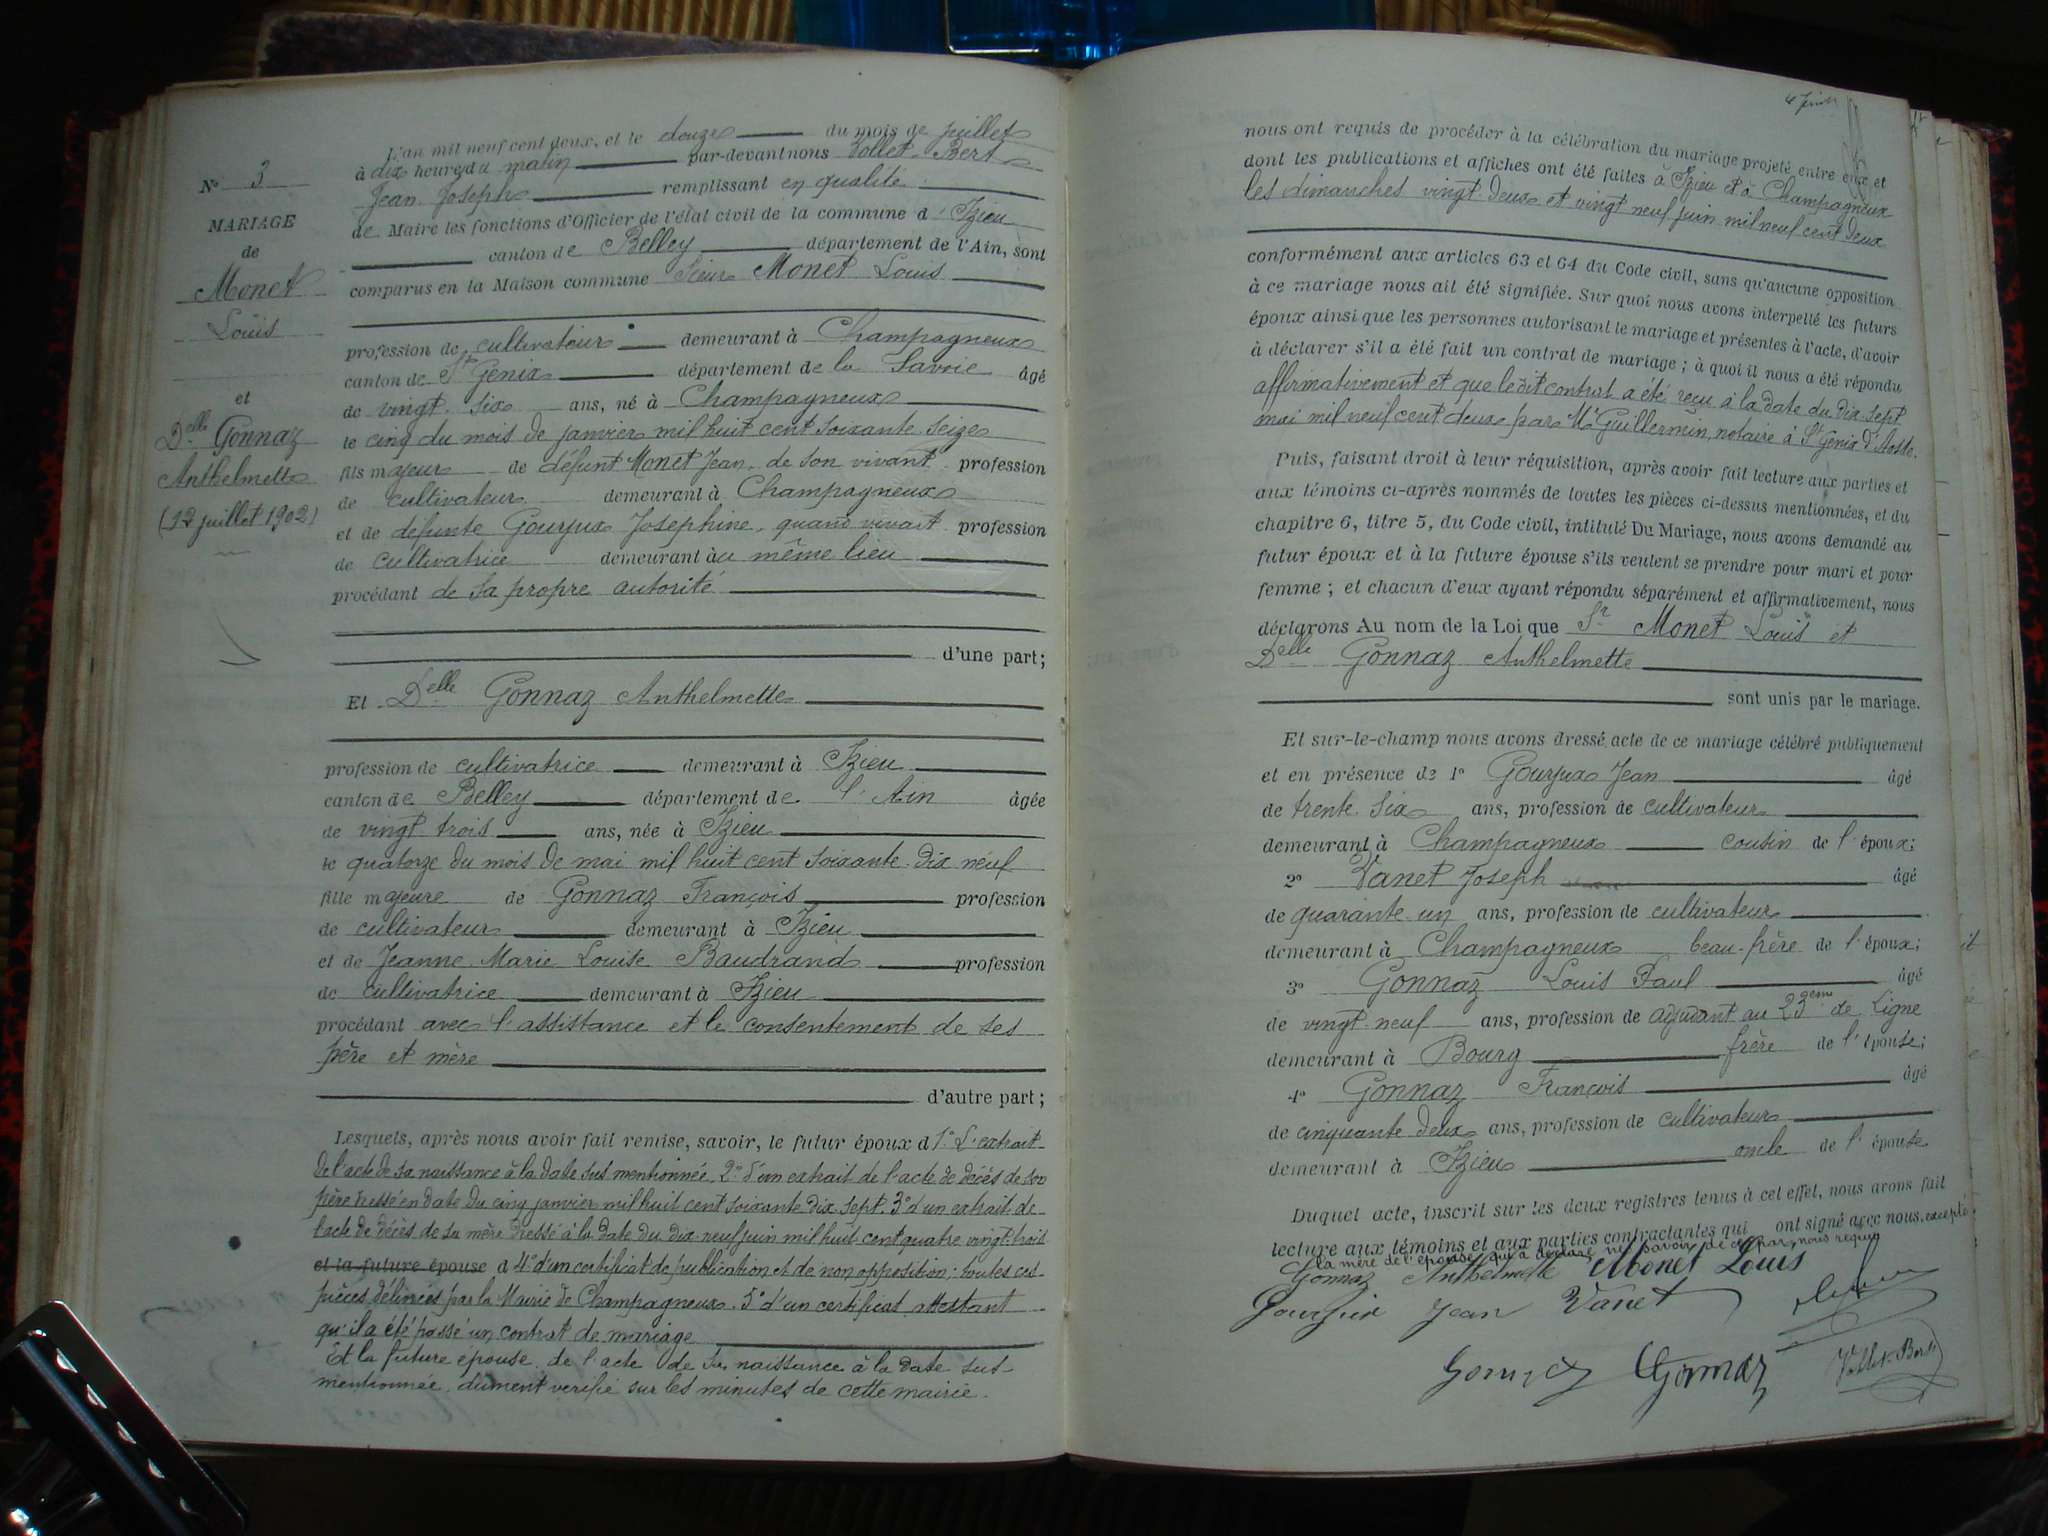 N° 3
MARIAGE
de
Monet
Louis
et
Delle Gonnaz
Anthelmette
(12 juillet 1902)
L'an mil neuf cent deux, et le douze du mois de juillet
à dix heures du matin par-devant nous Vollet-Bert
Jean Joseph remplissant en qualité
de Maire les fonctions d'Officier de l'état civil de la commune d'Izieu
canton de Belley département de l'Ain, sont
comparus en la Maison commune Sieur Monet Louis
profession de cultivateur demeurant à Champagneux
canton de St Genix département de la Savoie âgé
de vingt-six ans, né à Champagneux
le cinq du mois de janvier mil huit cent soixante seize
fils majeur de défunt Monet Jean de son vivant profession
de cultivateur demeurant à Champagneux
et de défunte Gourjux Joséphine quand vivait profession
de cultivatrice demeurant au même lieu
procédant de sa propre autorité
d'une part;
Et Delle Gonnaz Anthelmette
profession de cultivatrice demeurant à Izieu
canton de Belley département de l'Ain âgée
de vingt trois ans, née à Izieu
le quatorze du mois de mai mil huit cent soixante dix neuf
fille majeure de Gonnaz François profession
de cultivateur demeurant à Izieu
et de Jeanne Marie Louise Baudrand profession
de cultivatrice demeurant à Izieu
procédant avec l'assistance et le consentement de ses
père et mère
d'autre part;
Lesquels, après nous avoir fait remise, savoir, le futur époux d 1° L'extrait
de l'acte de sa naissance à la date sus mentionnée 2° d'un extrait de l'acte de décès de son
père dressé en date du cinq janvier mil huit cent soixante dix sept 3° d'un extrait de
l'acte de décès de sa mère dressé à la date du dix neuf juin mil huit cent quatre vingt trois
et la future épouse d 4° d'un certificat de publication et de non opposition; toutes ces
pièces délivrées par la Mairie de Champagneux. 5° d'un certificat attestant
qu'il a été passé un contrat de mariage
Et la future épouse de l'acte de sa naissance à la date sus-
mentionnée dûment verifié sur les minutes de cette mairie.
nous ont requis de procéder à la célébration du mariage projeté entre eux et
dont les publications et affiches ont été faites à Izieu et à Champagneux
les dimanches vingt-deux et vingt neuf juin mil neuf cent deux
conformément aux articles 63 et 64 du Code civil, sans qu'aucune opposition
à ce mariage nous ait été signifiée. Sur quoi nous avons interpellé les futurs
époux ainsi que les personnes autorisant le mariage et présentes à l'acte, d'avoir
à déclarer s'il a été fait un contrat de mariage; à quoi il nous a été répondu
affirmativement et que le dit contrat a été reçu à la date du dix-sept
mai mil neuf cent deux par Me Guillermin, notaire à St Genix d'Aoste.
Puis, faisant droit à leur réquisition, après avoir fait lecture aux parties et
aux témoins ci-après nommés de toutes les pièces ci-dessus mentionnées, et du
chapitre 6, titre 5, du Code civil, intitulé Du Mariage, nous avons demandé au
futur époux et à la future épouse s'ils veulent se prendre pour mari et pour
femme; et chacun d'eux ayant répondu séparément et affirmativement, nous
déclarons Au nom de la Loi que Sr Monet Louis et
Delle Gonnaz Anthelmette
sont unis par le mariage.
Et sur-le-champ nous avons dressé acte de ce mariage célébré publiquement
et en présence de 1° Gourjux Jean âgé
de trente-six ans, profession de cultivateur
demeurant à Champagneux cousin de l'époux;
2° Vanet Joseph âgé
de quarante-un ans, profession de cultivateur
demeurant à Champagneux beau-frère de l'époux;
3° Gonnaz Louis Paul âgé
de vingt-neuf ans, profession de adjudant au 23ème de Ligne
demeurant à Bourg frère de l'épouse;
4° Gonnaz François âgé
de cinquante deux ans, profession de cultivateur
demeurant à Izieu oncle de l'épouse
Duquel acte, inscrit sur les deux registres tenus à cet effet, nous avons fait
lecture aux témoins et aux parties contractantes qui ont signé avec nous, excepté
la mère de l'épouse qui a déclaré ne savoir de ce par nous requis
Gonnaz Anthelmette Monet Louis
Gourjux Jean Vanet
Gonnaz Gonnaz Vollet-Bert